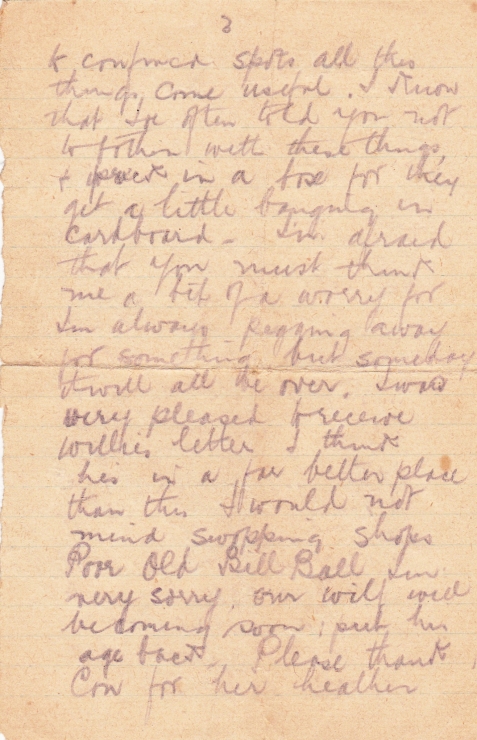 3
& confined spots all this
things, come useful. I know
that I've often told you not
to bother with these things
& pack in a box for they
get a little banging in
cardboard - I'm afraid
that you must think
me a bit of a worry for
I'm always pegging away
for something but someday
it will all be over. I was
very pleased to receive
Willies letter I think
hes in a far better place
than this I would not
mind swopping shops
Poor Old Bill Ball I'm
very sorry, our Wilf will
be coming soon, put his
age back - Please thank
Con for her heather